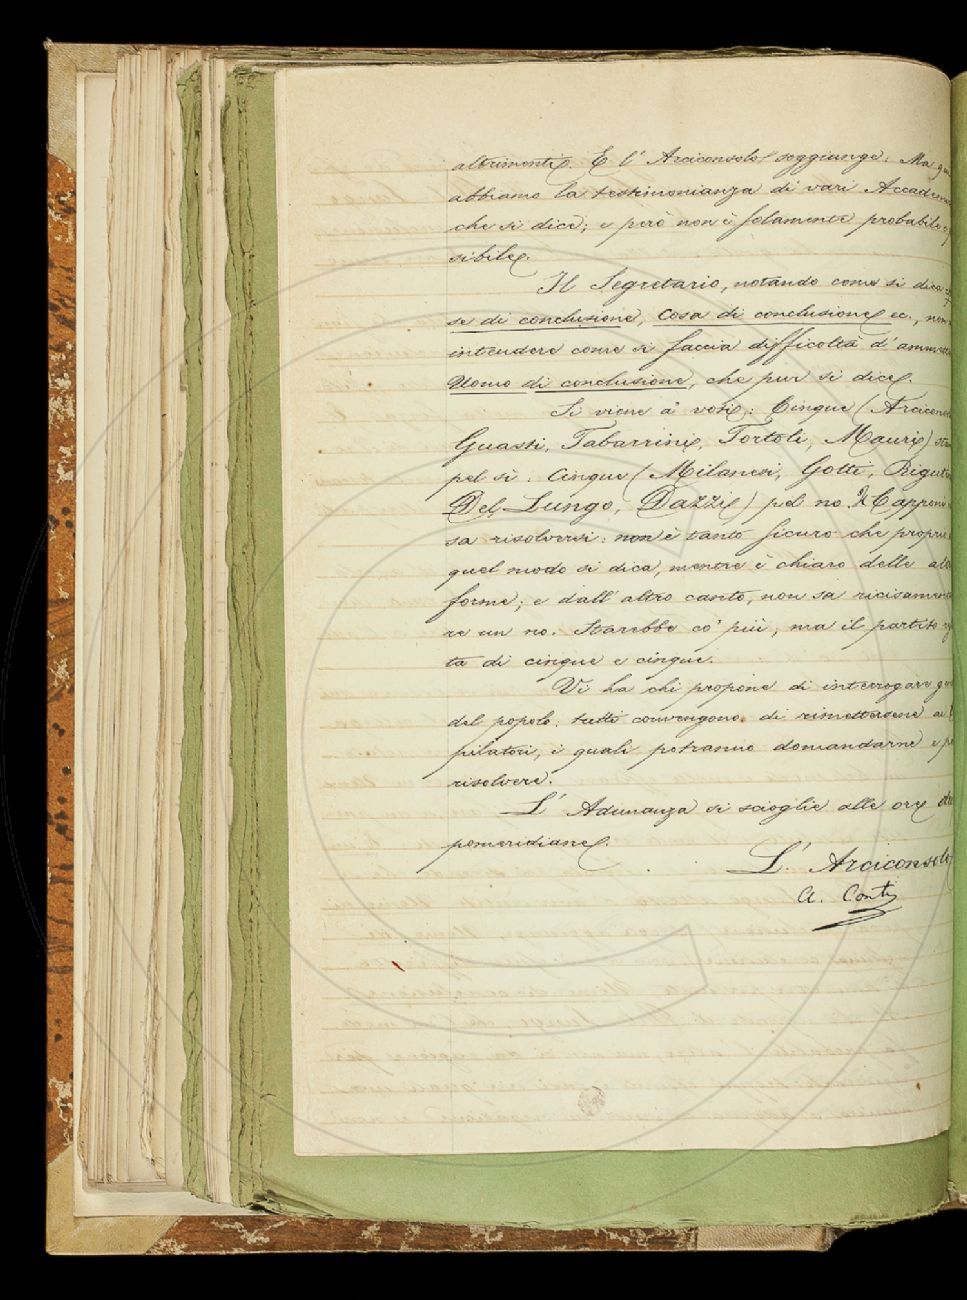 altrimenti. E l'Arciconsolo soggiunge: Ma
abbiamo la testimonianza di vari
che si dice; e però non è solamente probabile
sibile.
Il Segretario, notando come si dica
se di conclusione, Cosa di conclusione ec., non
intendere come si faccia difficoltà d'
Uomo di conclusione, che pur si dice.
Si viene a' voti: Cinque (
Guasti, Tabarrini, Tortoli, Mauri)
pel sì: Cinque (Milanesi, Gotti,
Del Lungo, Dazzi) pel no. Il Capponi
sa risolversi: non è tanto sicuro che
quel modo si dica, mentre è chiaro delle
forme; e dall'altro canto, non sa
re un no. Starebbe co' più; ma il partito
ta di cinque e cinque.
Vi ha chi propone di interrogare
del popolo: tutti convengono di rimettersene a'
pilatori, i quali potranno domandarne e
risolvere.
L'Adunanza si scioglie alle ore
pomeridiane.
L'Arciconsolo
A. Conti